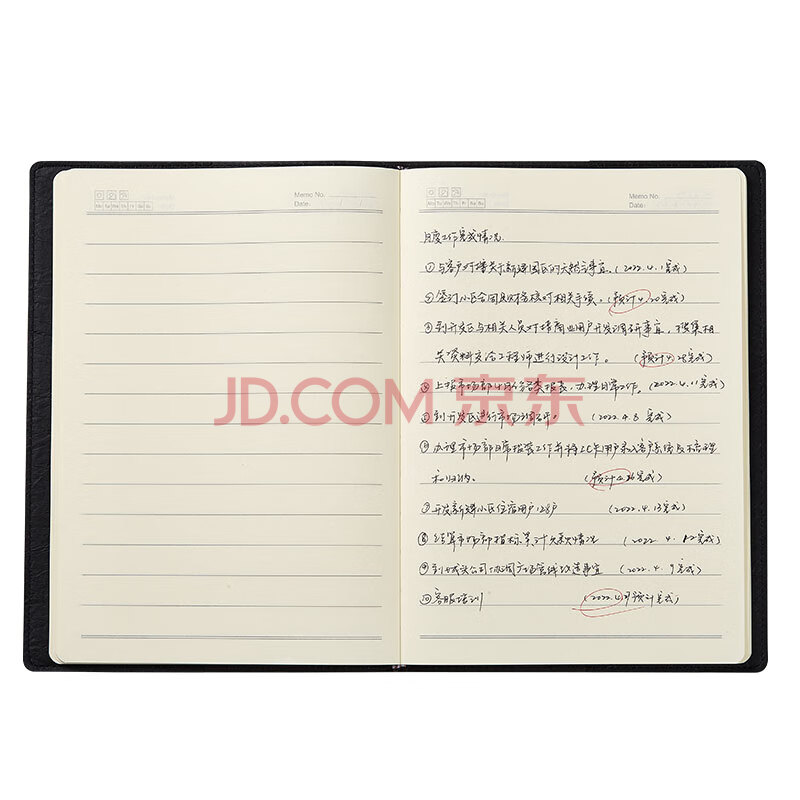 Memo No.
Date:
Mo Tu We Th Fr Sa Su
Memo No.
Date:
Mo Tu We Th Fr Sa Su
月度工作完成情况.
①与客户对接关于新建园区的天然气事宜。(2022.4.1完成)
②签订小区合同及财务核对相关手续。(预计4.20完成)
③到开发区与相关人员对接商业用户开发调研事宜，搜集相
关资料交给工程师进行设计工作。(预计4.28完成)
上报市场部4月份各类报表，办理日常工作。(2022.4.11完成)
到开发区进行市场调研。(2022.4.8完成)
办理市场部日常报装工作并将IC卡用户录入客户系统及梳理
和归纳。(预计4.26完成)
⑦开发新建小区住宿用户128户 (2022.4.13完成)
⑧结算市场部指标累计欠款情况 (2022.4.完成)
⑨到城关公司协调广场管线改造事宜 (2022.4.9完成)
⑩客服培训 (2022.4月预计完成)
JD.COM 京东